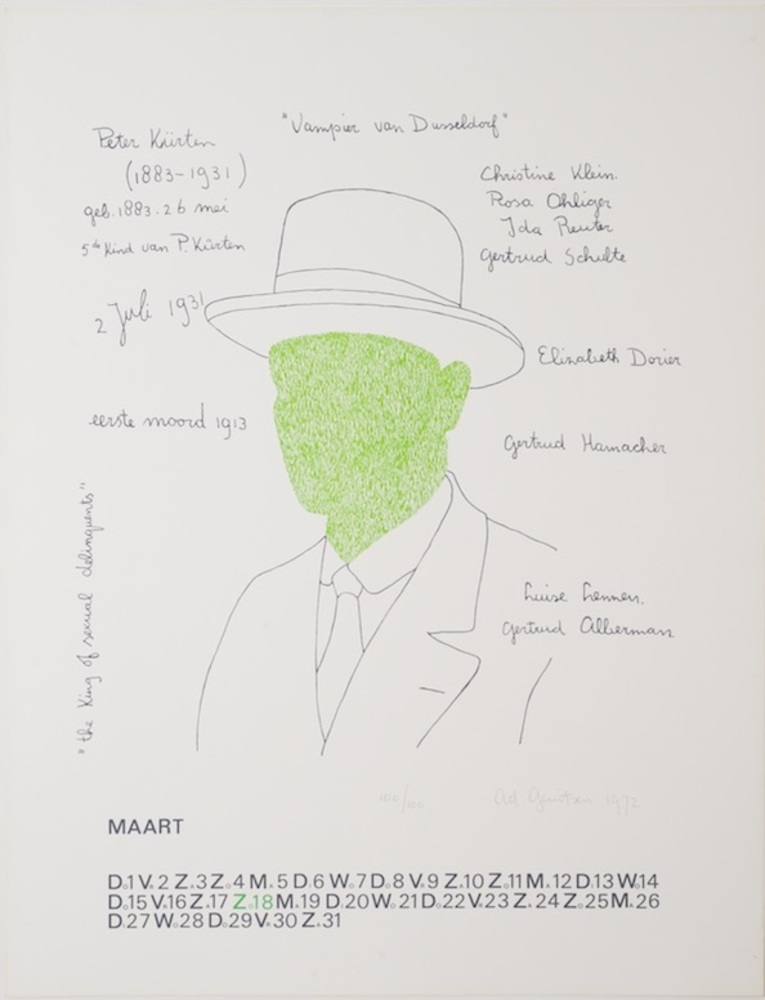 "Vampier van Dusseldorf"
Peter Kürten
(1883-1931)
geb. 1883. 26 mei
5de Kind van P. Kürten
2 Juli 1931
eerste moord 1913
"the King of sexual delinquents"
Christine Klein.
Rosa Ohliger
Ida Reuter
Gertrud Schulte
Elisabeth Dorier
Gertrud Hamacher
Luise Lennen.
Gertrud Alberman
100/100
Ad Gerritsen 1972
MAART
D.1 V.2 Z.3 Z.4 M.5 D.6 W.7 D.8 V.9 Z.10 Z.11 M.12 D.13 W.14
D.15 V.16 Z.17 Z.18 M.19 D.20 W.21 D.22 V.23 Z.24 Z.25 M.26
D.27 W.28 D.29 V.30 Z.31